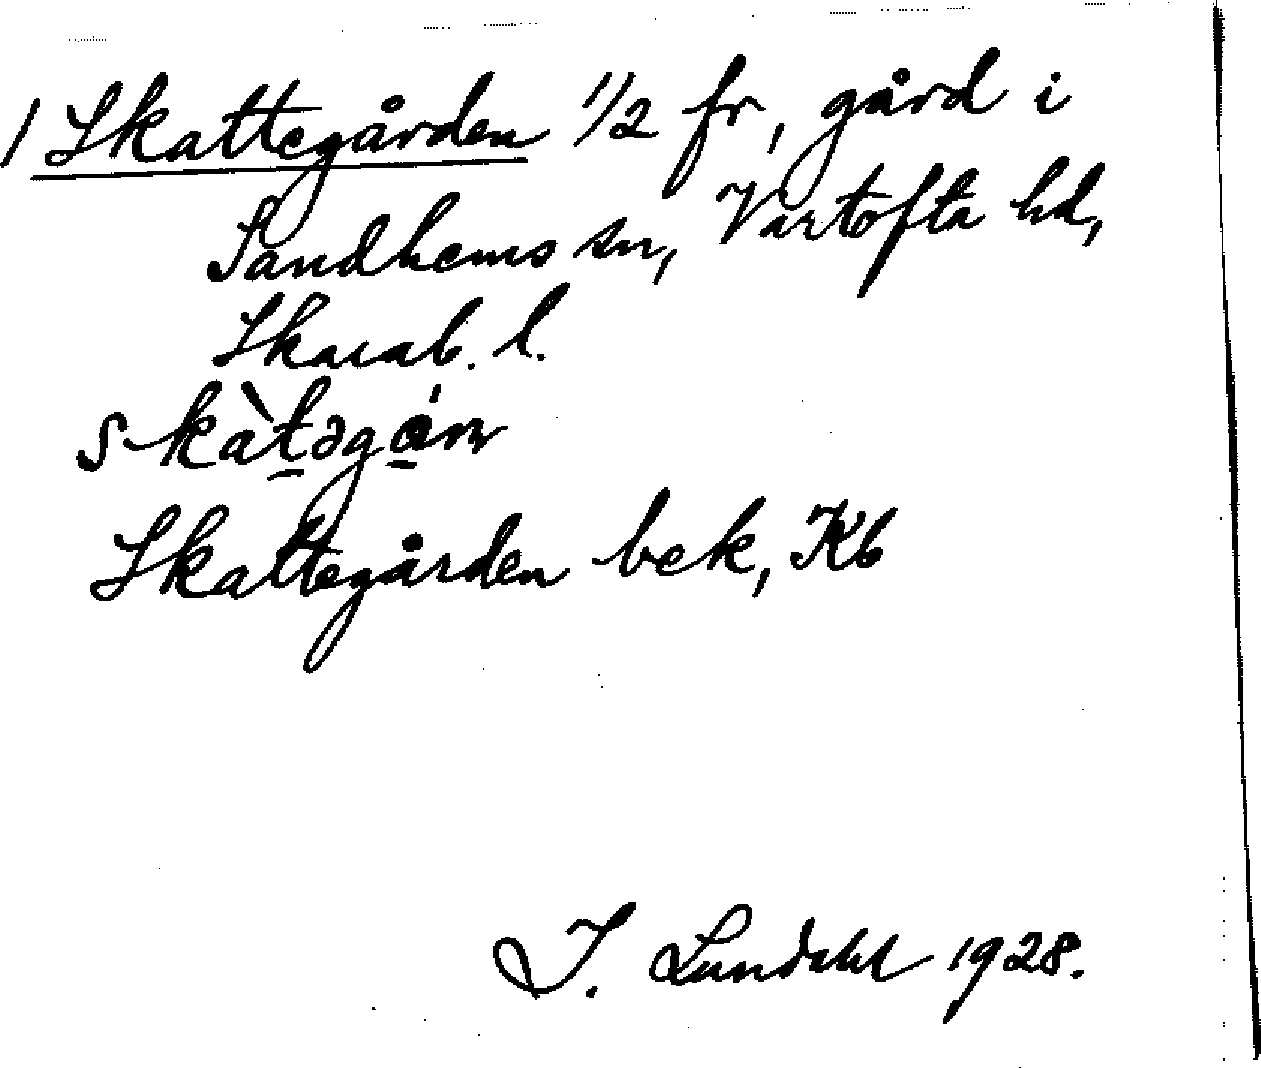 / Skattegården 1/2 fr, gård i
Sandhems sn, Vartofta hd,
Skarab. l.
skàt̠əgɑ̠́n
Skattegården bek, Kb
I. Lundahl 1928.